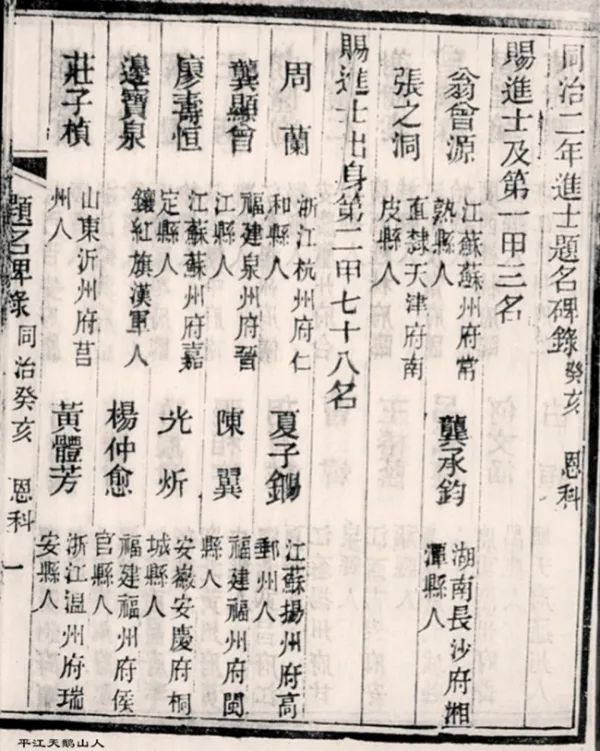 同治二年進士題名碑錄 癸亥 恩科
賜進士及第第一甲三名
翁曾源 江蘇蘇州府常熟縣人
龔承鈞 湖南長沙府湘潭縣人
張之洞 直隸天津府南皮縣人
賜進士出身第二甲七十八名
周蘭 浙江杭州府仁和縣人
夏子鐊 江蘇揚州府高郵州人
龔顯曾 福建泉州府晉江縣人
陳翼 福建福州府閩縣人
廖壽恒 江蘇蘇州府嘉定縣人
光炘 安徽安慶府桐城縣人
邊寶泉 鑲紅旗漢軍人
楊仲愈 福建福州府侯官縣人
莊子楨 山東沂州府莒州人
黃體芳 浙江溫州府瑞安縣人
題名碑錄 同治癸亥 恩科 一
平江天鹅山人